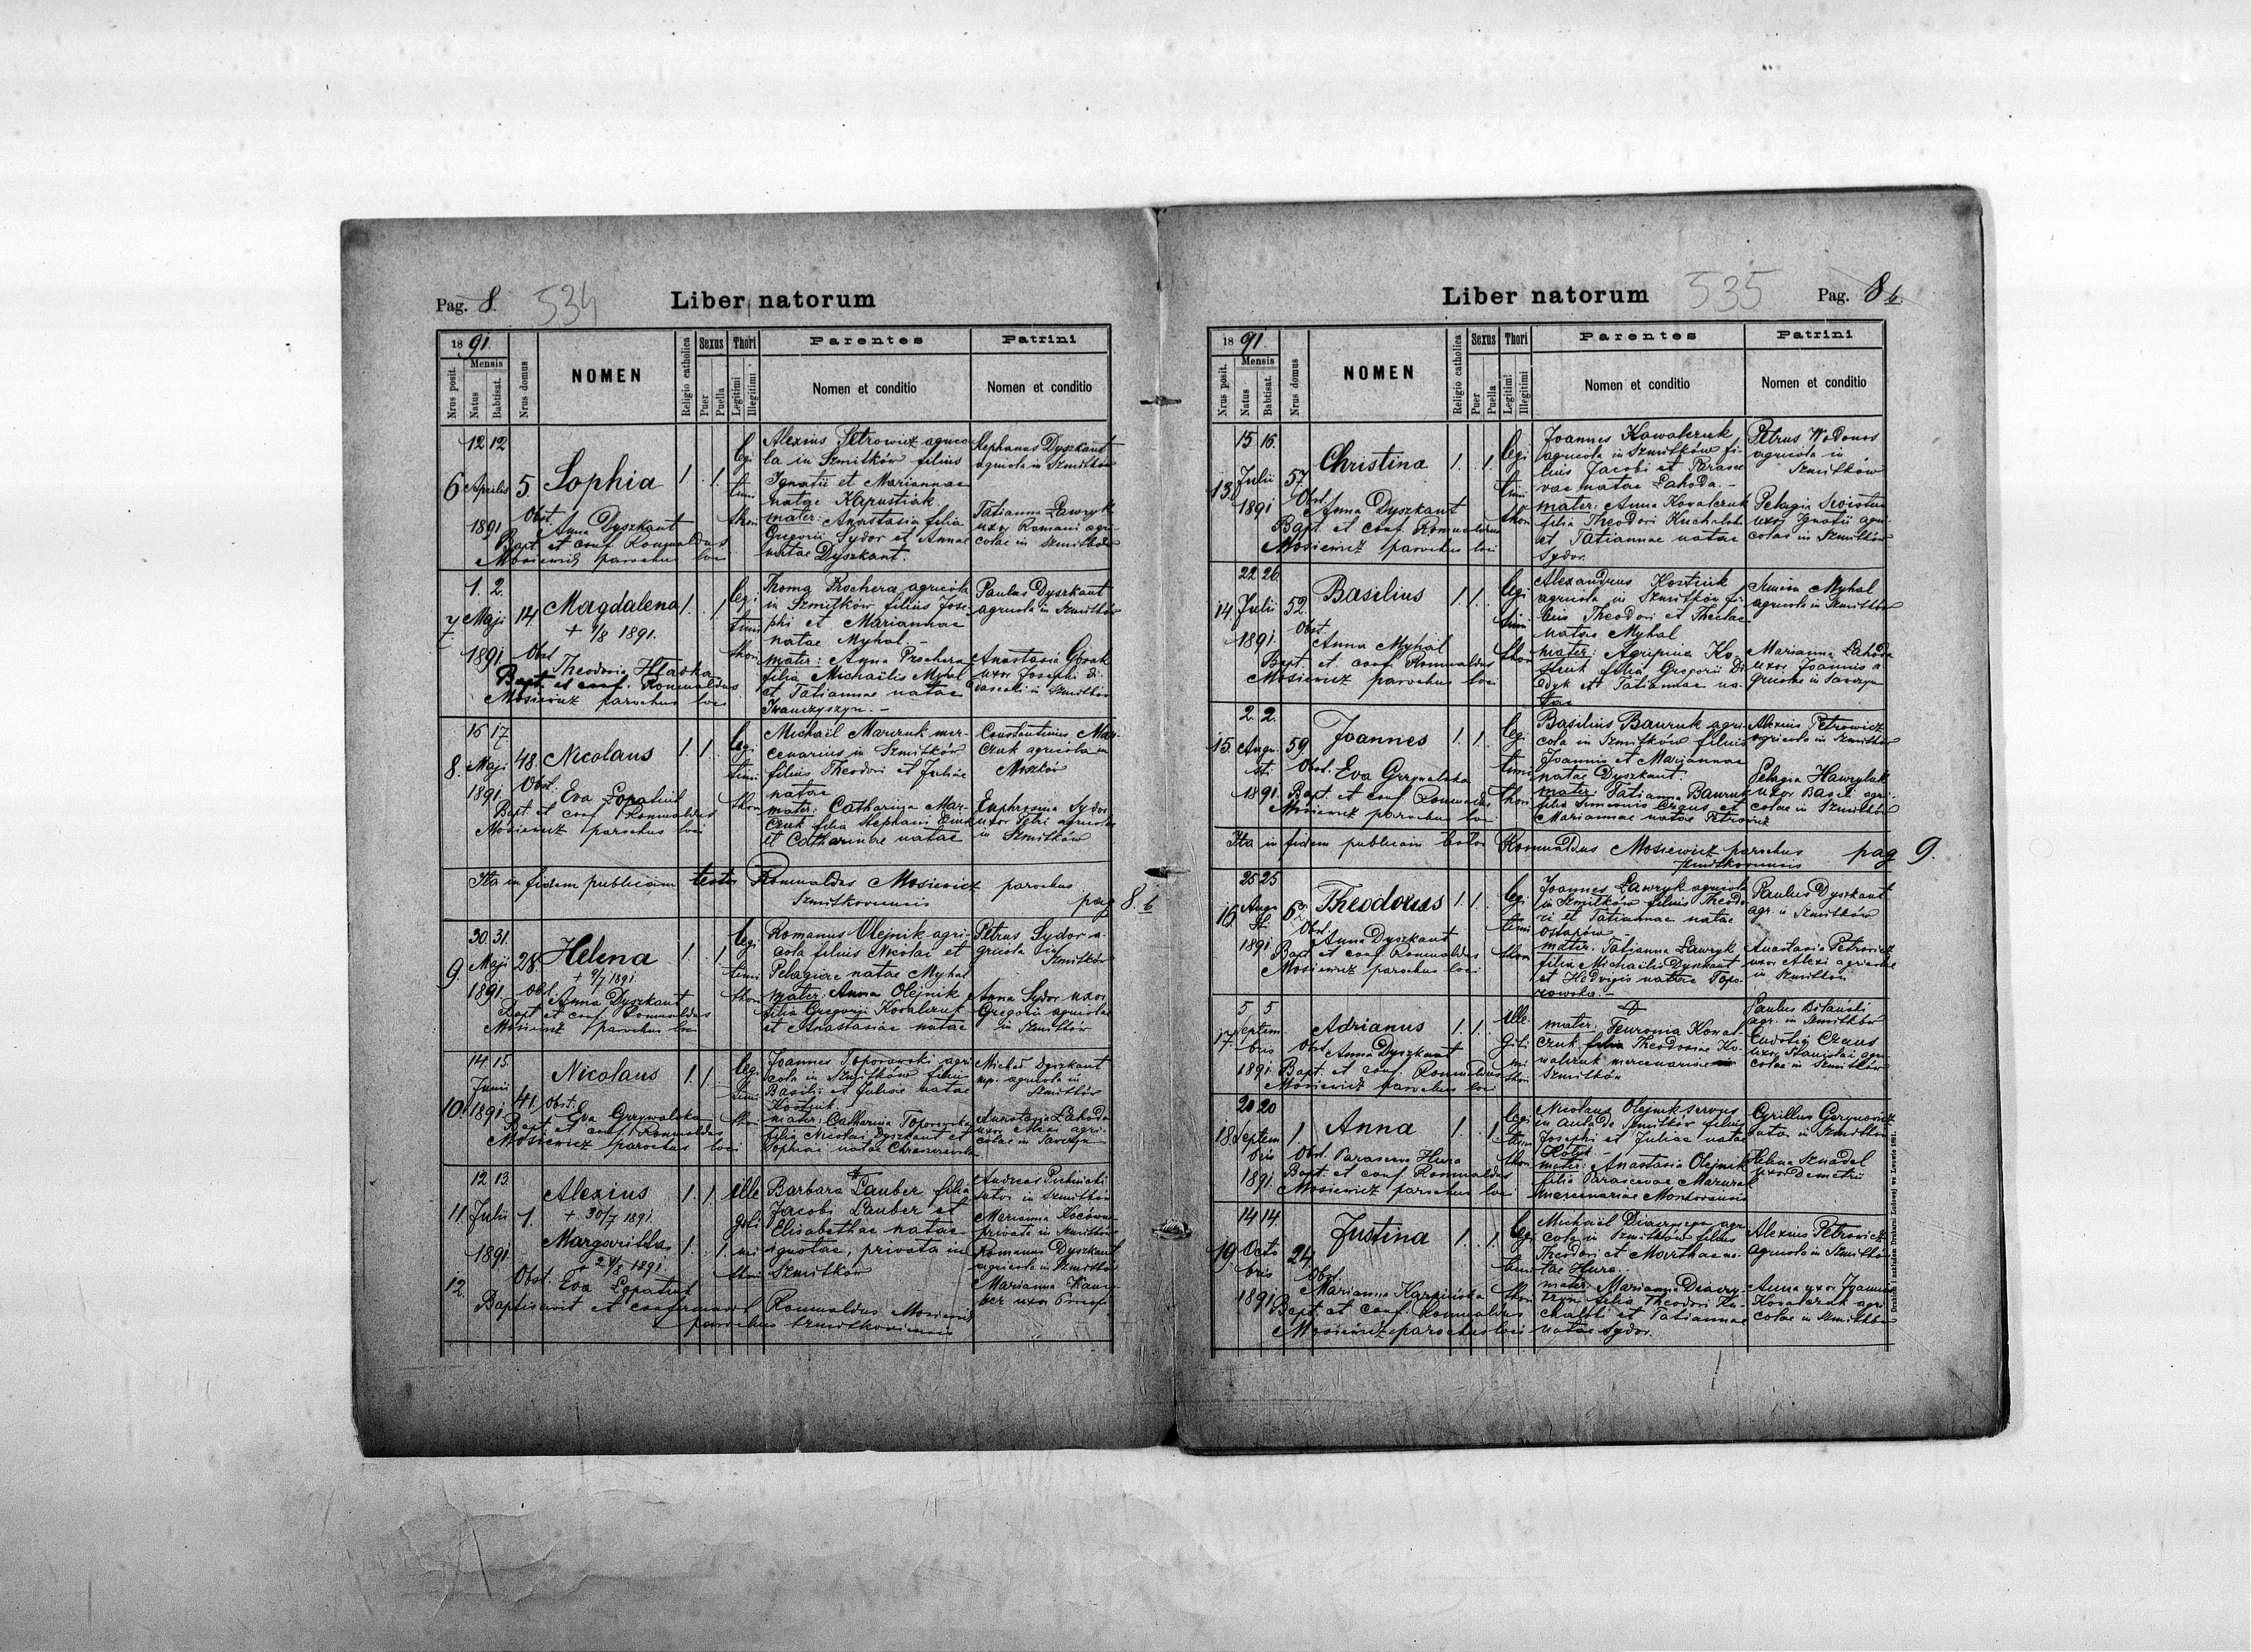 Pag. 8. 534 Liber natorum
18 91.
Nrus posit.
Mensis
Natus
Babtisat.
Nrus domus
NOMEN
Religio catholica
Sexus
Puer
Puella
Thori
Legitimi
Illegitimi
Parentes
Nomen et conditio
Patrini
Nomen et conditio
12 12
6 Aprilis 5. Sophia 1. 1. legi
timi
thori
1891 Obst. Anna Dyszkant
Bapt. et conf. Romualdus
Mosiewicz parochus loci
Alexius Petrowicz agrico
la in Szmitków filius
Ignatii et Mariannae
natae Kapustiak
mater: Anastasia filia
Gregorii Sydor et Annae
natae Dyszkant.
Stephanus Dyszkant
agricola in Szmitków
Tatianna Ławryk
uxor Romani agri-
colae in Szmitków
1. 2.
7 Maji 14 Magdalena 1. 1 legi
timi
thori
+ 9/8 1891.
1891. Obst Theodosia Hladka
Bapt. et conf. Romualdus
Mosiewicz parochus loci
Thoma Prochera agricola
in Szmitków filius Jose-
phi et Mariannae
natae Myhal. -
mater: Anna Prochera
filia Michaëlis Myhal
et Tatiannae natae
Iwanczyszyn. -
Paulus Dyszkant
agricola in Szmitków
Anastasia Gorak
uxor Josephi di-
dascali in Szmitków
16 17
8. Maji 48. Nicolaus 1. 1. legi
timi
thori
1891. Obst. Eva Lopatiuk
Bapt. et conf Romualdus
Mosiewicz parochus loci
Michaël Marczuk mer-
cenarius in Szmitków
filius Theodori et Juliae
natae
mater: Catharina Mar-
czuk filia Stephani
et Catharinae natae
Constantinus Mar-
czuk agricola in
Moszków
Euphrosina Sydor
uxor Petri agricolae
in Szmitków
Ita in fidem publicam testor Romualdus Mosiewicz parochus
Szmitkoviensis pag 8. b
30. 31.
9 Maji 28. Helena 1. 1 legi
timi
thori
+ 9/7 1891.
1891. Obst. Anna Dyszkant
Bapt et conf. Romualdus
Mosiewicz parochus loci
Romanus Olejnik agri-
cola filius Nicolai et
Pelagiae natae Myhal
mater: Anna Olejnik
filia Gregorii Kowalczuk
et Anastasiae natae
Petrus Sydor a-
gricola in
Szmitków
Anna Sydor uxor
Gregorii agricolae
in Szmitków
14. 15.
Junii Nicolaus 1. 1. legi
timi
thori
10. 1891 41. Obst. Eva Grzywalska
Bapt. et conf. Romualdus
Mosiewicz parochus loci
Joannes Toporowski agri
cola in Szmitków filius
Basilii et Juliae natae
Kostiuk.
mater: Catharina Toporowska
filia Nicolai Dyszkant et
Sophiae natae
Michaël Dyszkant
agricola in
Szmitków
Anastasia Łahoda
uxor Alexi agri-
colae in Sawczyn
12 13
11. Julii 1. Alexius 1. 1. ille
giti
mi
thori
+ 30/7 1891.
1891 Margaritha 1. 1.
+ 24/8 1891.
12. Obst. Eva Lopatiuk
Baptisavit et confirmavit Romualdus Mosiewicz
parochus Szmitkoviensis
Barbara Lauber filia
Jacobi Lauber et
Elisabethae natae
ignotae, privata in
Szmitków
Andreas
sutor in Szmitków
Marianna
privata in Szmitków
Romanus Dyszkant
agricola in Szmitków
Marianna
uxor
Liber natorum 535 Pag. 8 b.
18 91.
Nrus posit.
Mensis
Natus
Babtisat.
Nrus domus
NOMEN
Religio catholica
Sexus
Puer
Puella
Thori
Legitimi
Illegitimi
Parentes
Nomen et conditio
Patrini
Nomen et conditio
15 16.
13. Julii 57 Christina 1. 1. legi
timi
thori
1891 Obst. Anna Dyszkant
Bapt. et conf. Romualdus
Mosiewicz parochus loci
Joannes Kowalczuk
agricola in Szmitków fi-
lius Jacobi et Parasce
vae natae Łahoda. -
mater: Anna Kowalczuk
filia Theodori
et Tatiannae natae
Sydor.
Petrus Wodonos
agricola in
Szmitków
Pelagia
uxor Ignatii agri-
colae in Szmitków
22 26.
14. Julii 52. Basilius 1. 1. legi
timi
thori
1891. Obst Anna Myhal
Bapt. et conf Romualdus
Mosiewicz parochus loci
Alexandrus Kostiuk
agricola in Szmitków fi-
lius Theodori et Theclae
natae Myhal
mater: Agripina Ko-
stiuk filia Gregorii Di
dyk et Tatiannae na-
tae
Simion Myhal
agricola in Szmitków
Marianna Łahoda
uxor Joannis a
gricolae in Sawczyn
2. 2.
15. Augu-
sti 59 Joannes 1. 1. legi
timi
thori
1891. Obst. Eva Grzywalska
Bapt et conf Romualdus
Mosiewicz parochus loci
Basilius Bauruk agri-
cola in Szmitków filius
Joannis et Mariannae
natae Dyszkant.
mater: Tatianna Bauruk
filia Simeonis Craus et
Mariannae natae Petrowicz
Alexius Petrowicz
agricola in Szmitków
Pelagia Hawryluk
uxor Basili agri-
colae in Szmitków
Ita in fidem publicam testor Romualdus Mosiewicz parochus
Szmitkoviensis pag 9.
25 25
16. Augu
sti 6 Theodorus 1. 1. legi
timi
thori
1891. Obst. Anna Dyszkant
Bapt et conf. Romualdus
Mosiewicz parochus loci
Joannes Ławryk agricola
in Szmitków filius Theodo
ri et Tatiannae natae
Ostapów -
mater: Tatianna Ławryk
filia Michaëlis Dyszkant
et Hedvigis natae Topo-
rowska. -
Paulus Dyszkant
agr. in Szmitków
Anastasia Petrowicz
uxor Alexi agricolae
in Szmitków
5 5
17. Septem-
bris Adrianus 1. 1. ille
giti
mi
thori
Obst Anna Dyszkant
1891. Bapt. et conf. Romualdus
Mosiewicz parochus loci
mater: Feuronia Kowal-
czuk filia Theodosiae Ko-
walczuk mercenariae
Szmitków
Paulus
agr. in Szmitków
Ludovig Craus
uxor Stanislai agri-
colae in Szmitków
20 20
18. Septem
bris 1. Anna 1. 1 legi
timi
thori
Obst. Parasceva Hura
1891. Bapt. et conf Romualdus
Mosiewicz parochus loci
Nicolaus Olejnik servus
in aula de Szmitków filius
Josephi et Juliae natae
mater: Anastasia Olejnik
filia Parascevae Mazurek
mercenariae
Cyrillus
sutor in Szmitków
Helena Sznadel
uxor Demetrii
14 14
19. Octo
bris 24. Justina 1. 1. legi
timi
thori
1891. Obst. Marianna Karpinska
Bapt et conf. Romualdus
Mosiewicz parochus loci
Michaël Diaczyszyn agri
cola in Szmitków filius
Theodori et Marthae na-
tae Hura.
mater: Marianna Diaczy-
szyn filia Theodori Ku-
et Tatiannae
natae Sydor.
Alexius Petrowicz
agricola in Szmitków
Anna uxor Joannis
Kowalczuk agri
colae in Szmitków
Drukiem i nakładem Drukarni Ludowej we Lwowie 1891.